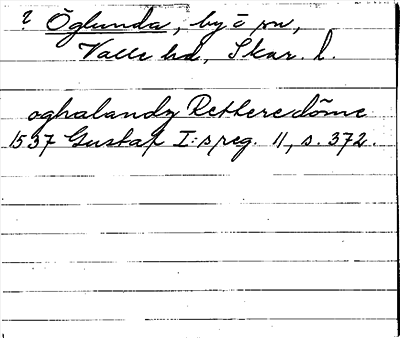 ? Öglunda, by o sn,
Valle hd, Skar. l.
oghalandz Retteredöme
1537 Gustaf I:s reg. 11, s. 372.